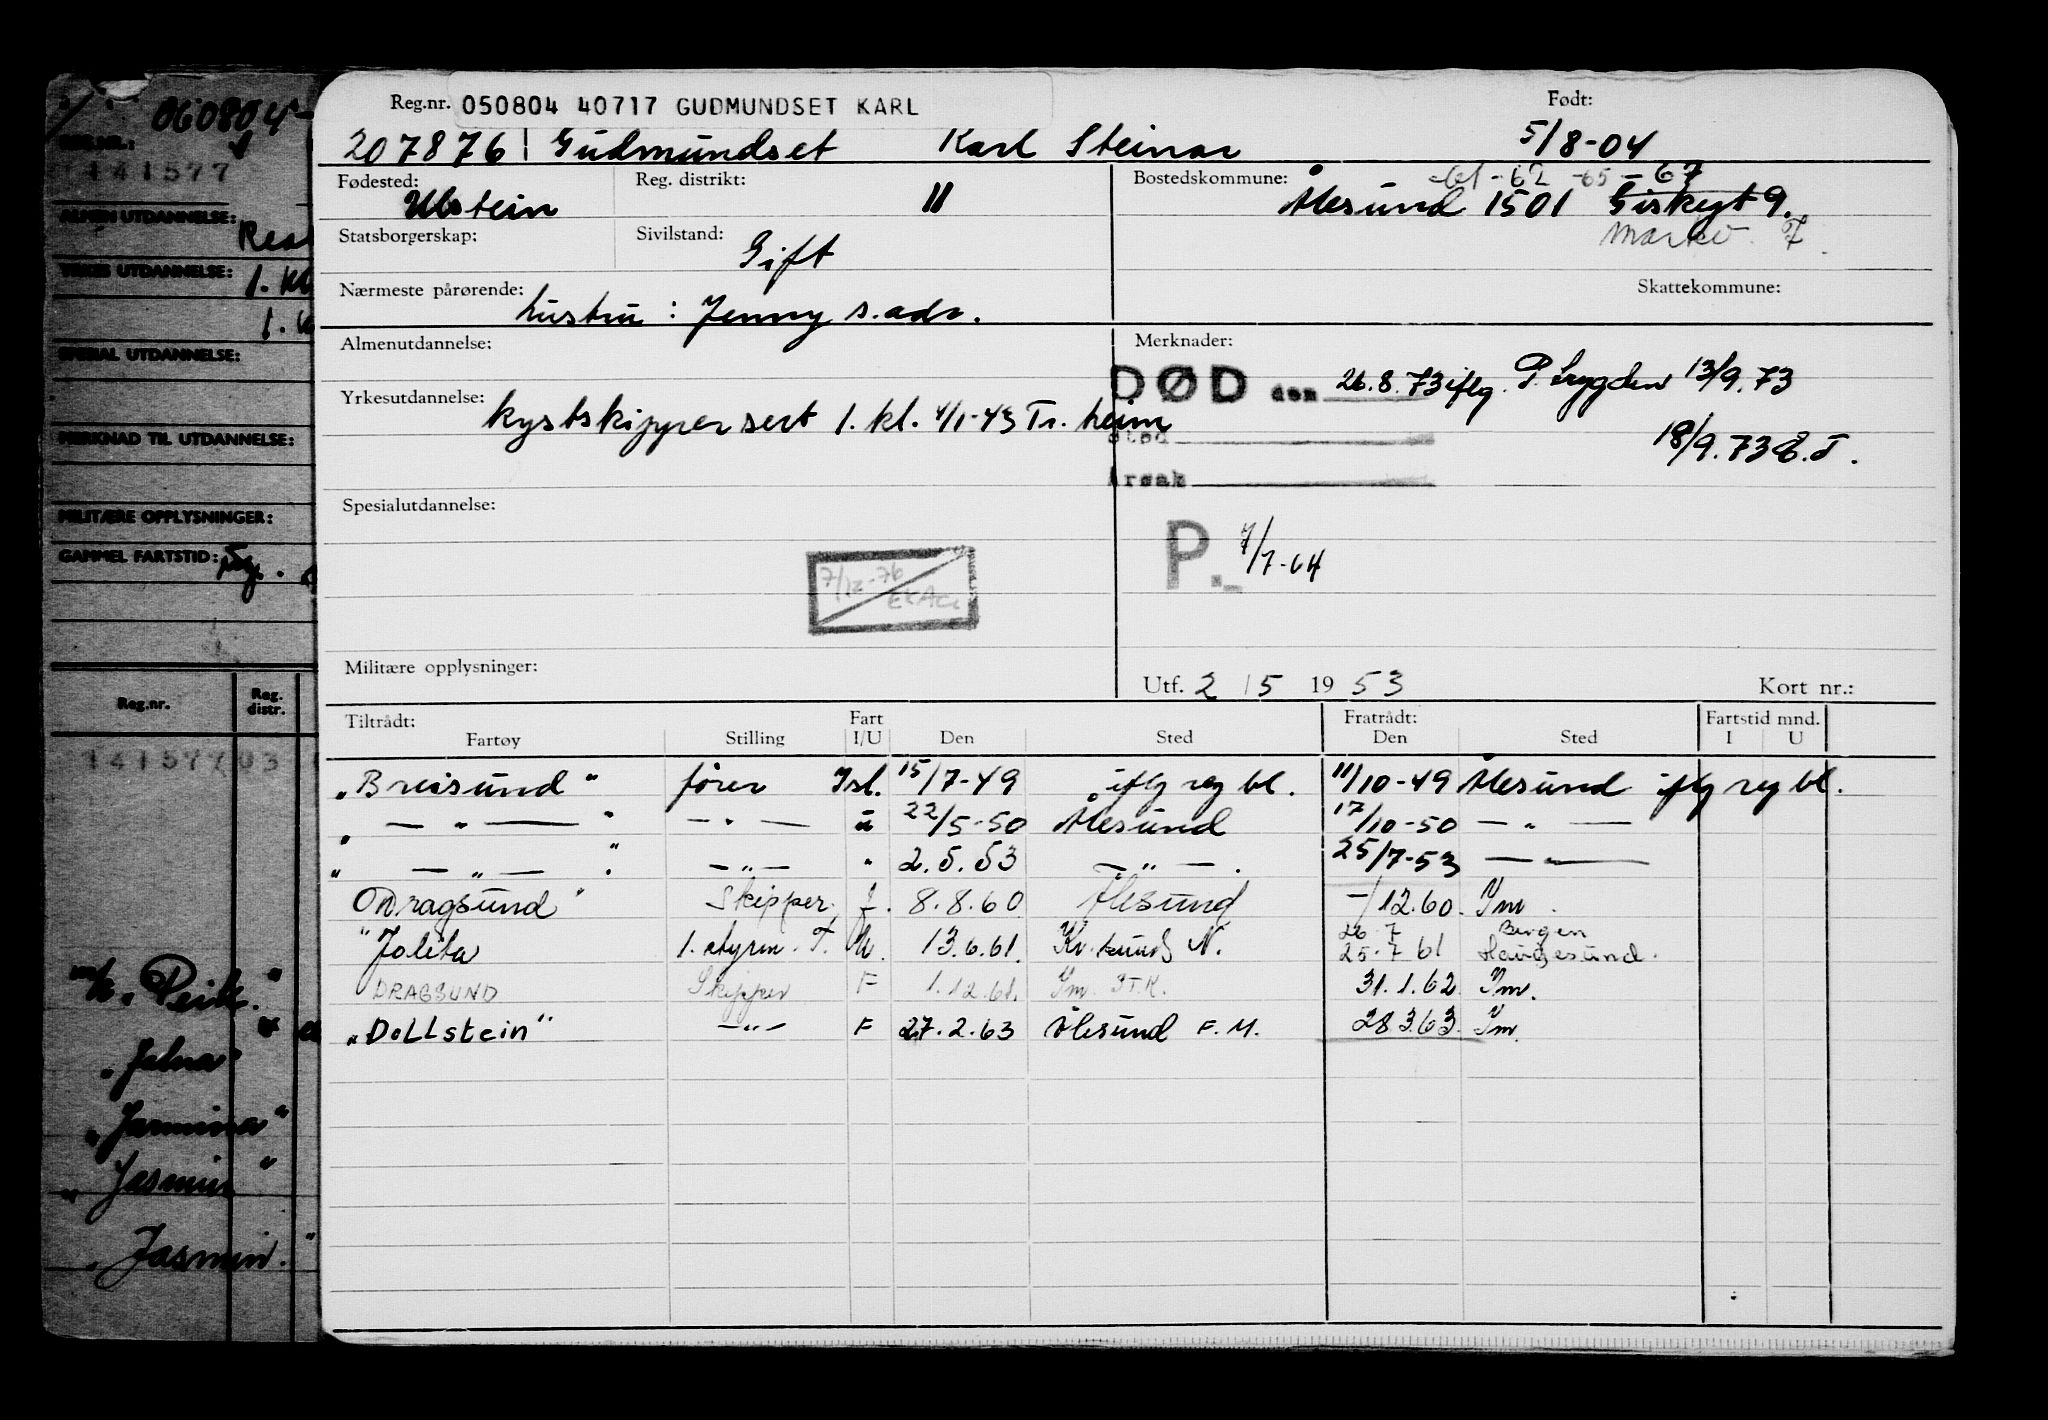 060804
REG.NR.:
141577
ALMEN UTDANNELSE:
YRKES UTDANNELSE: 1. kl
SPESIAL UTDANNELSE:
MERKNAD TIL UTDANNELSE:
MILITÆRE OPPLYSNINGER:
GAMMEL FARTSTID:
Reg.nr. Reg. distr.
141577 03
"Jelna"
"Jasmina"
"Jasmin"
"Jasmin."
Reg.nr. 050804 40717 GUDMUNDSET KARL Født:
207876 Gudmundset Karl Steinar 5/8-04
Fødested: Reg. distrikt: Bostedskommune: -61 -62 -65 -67
Ulstein 11 Ålesund 1501 Giskegt 9.
Statsborgerskap: Sivilstand: Gift
Nærmeste pårørende: Skattekommune:
hustru: Jenny s.adr.
Almenutdannelse: Merknader:
DØD den 26.8.73 iflg. P. trygden 13/9.73
Yrkesutdannelse: kystskippersert 1. kl. 4/1-43 Tr.heim
Sted
18/9.73 E.T.
Årsak
Spesialutdannelse:
P. 7/7-64
7/12-76
Militære opplysninger:
Utf. 2/5 1953 Kort nr.:
Tiltrådt: Fart Fratrådt: Fartstid mnd.
Fartøy Stilling I/U Den Sted Den Sted I U
"Breisund" fører Isl. 15/7-49 iflg reg bl. 11/10-49 Ålesund iflg reg bl.
" — " — " — " — u 22/5-50 Ålesund 17/10-50 — " —
" — " — " — " — " 2.5.53 — " — . 25/7-53 — " —
"Dragsund" Skipper f. 8.8.60 Ålesund —/12.60. Ym.
"Jolita 1. styrm. T. U. 13.6.61. Kr.sund N. 26 7 Bergen
25.7 61 Haugesund.
DRAGSUND Skipper F 1.12.61. Ym. 31.1.62. Ym.
"Dollstein" — " — F 27.2.63 Ålesund F.M. 28.3.63. Ym.